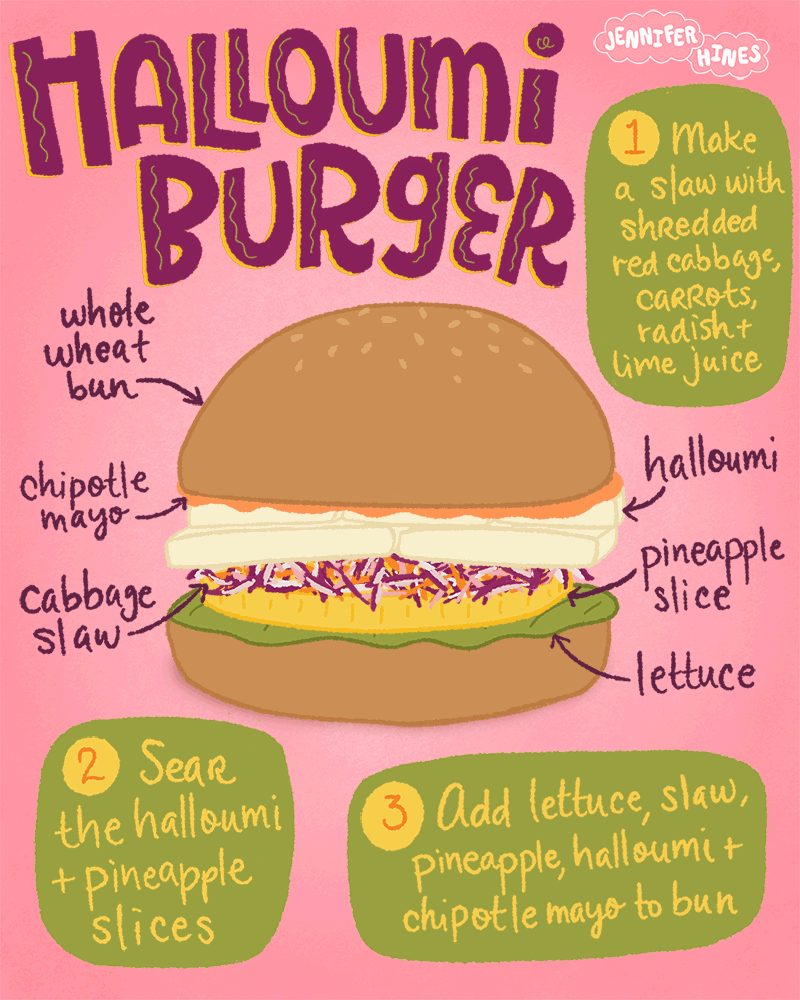 HALLOUMi
BURgER
JENNIFER
HINES
1 Make
a slaw with
shredded
red cabbage,
carrots,
radish +
lime juice
whole
wheat
bun
chipotle
mayo
cabbage
slaw
halloumi
pineapple
slice
lettuce
2 Sear
the halloumi
+ pineapple
slices
3 Add lettuce, slaw,
pineapple, halloumi +
chipotle mayo to bun